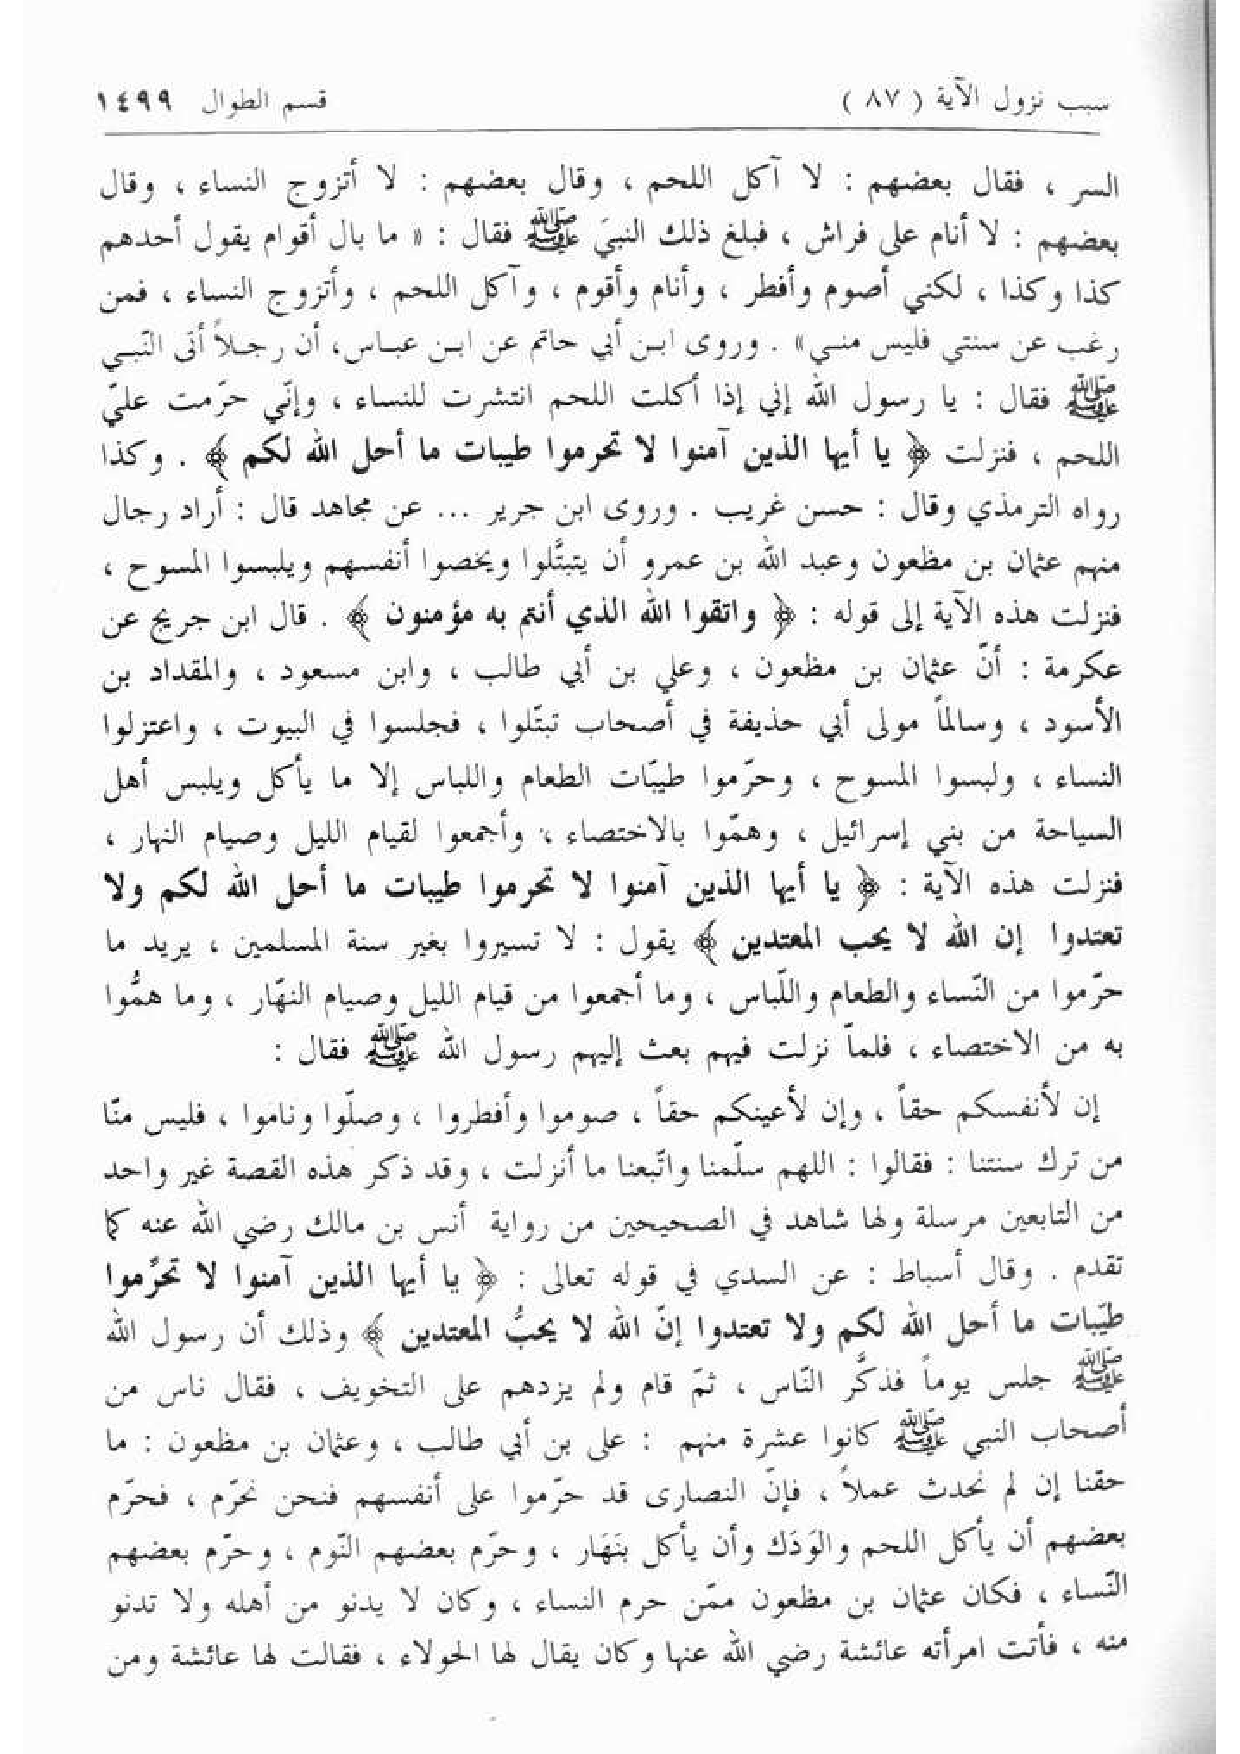 سبب نزول الآية ( ٨٧ ) قسم الطوال ١٤٩٩
السر ، فقال بعضهم : لا آكل اللحم ، وقال بعضهم : لا أتزوج النساء ، وقال
بعضهم : لا أنام على فراش ، فبلغ ذلك النبيَ ﷺ فقال : « ما بال أقوام يقول أحدهم
كذا وكذا ، لكني أصوم وأفطر ، وأنام وأقوم ، وآكل اللحم ، وأتزوج النساء ، فمن
رغب عن سنتي فليس مني » . وروى ابن أبي حاتم عن ابن عباس، أن رجلاً أتى النّبي
ﷺ فقال : يا رسول الله إني إذا أكلت اللحم انتشرت للنساء ، وإنّي حرّمت عليّ
اللحم ، فنزلت ﴿ يا أيها الذين آمنوا لا تحرموا طيبات ما أحل الله لكم ﴾ . وكذا
رواه الترمذي وقال : حسن غريب . وروى ابن جرير ... عن مجاهد قال : أراد رجال
منهم عثمان بن مظعون وعبد الله بن عمرو أن يتبتَّلوا ويخصوا أنفسهم ويلبسوا المسوح ،
فنزلت هذه الآية إلى قوله : ﴿ واتقوا الله الذي أنتم به مؤمنون ﴾ . قال ابن جريج عن
عكرمة : أنّ عثمان بن مظعون ، وعلي بن أبي طالب ، وابن مسعود ، والمقداد بن
الأسود ، وسالماً مولى أبي حذيفة في أصحاب تبتّلوا ، فجلسوا في البيوت ، واعتزلوا
النساء ، ولبسوا المسوح ، وحرّموا طيبّات الطعام واللباس إلا ما يأكل ويلبس أهل
السياحة من بني إسرائيل ، وهمّوا بالاختصاء ، وأجمعوا لقيام الليل وصيام النهار ،
فنزلت هذه الآية : ﴿ يا أيها الذين آمنوا لا تحرموا طيبات ما أحل الله لكم ولا
تعتدوا إن الله لا يحب المعتدين ﴾ يقول : لا تسيروا بغير سنة المسلمين ، يريد ما
حرّموا من النّساء والطعام واللّباس ، وما أجمعوا من قيام الليل وصيام النهّار ، وما همُّوا
به من الاختصاء ، فلماّ نزلت فيهم بعث إليهم رسول الله ﷺ فقال :
إن لأنفسكم حقاً ، وإن لأعينكم حقاً ، صوموا وأفطروا ، وصلّوا وناموا ، فليس منّا
من ترك سنتنا : فقالوا : اللهم سلّمنا واتّبعنا ما أنزلت ، وقد ذكر هذه القصة غير واحد
من التابعين مرسلة ولها شاهد في الصحيحين من رواية أنس بن مالك رضي الله عنه كما
تقدم . وقال أسباط : عن السدي في قوله تعالى : ﴿ يا أيها الذين آمنوا لا تحرِّموا
طيّبات ما أحل الله لكم ولا تعتدوا إنّ الله لا يحبُّ المعتدين ﴾ وذلك أن رسول الله
ﷺ جلس يوماً فذكَّر النّاس ، ثمّ قام ولم يزدهم على التخويف ، فقال ناس من
أصحاب النبي ﷺ كانوا عشرة منهم : على بن أبي طالب ، وعثمان بن مظعون : ما
حقّنا إن لم نحدث عملاً ، فإنّ النصارى قد حرّموا على أنفسهم فنحن نحرّم ، فحرّم
بعضهم أن يأكل اللحم والوَدَك وأن يأكل بنَهَار ، وحرّم بعضهم النّوم ، وحرّم بعضهم
النّساء ، فكان عثمان بن مظعون ممّن حرم النساء ، وكان لا يدنو من أهله ولا تدنو
منه ، فأتت امرأته عائشة رضي الله عنها وكان يقال لها الحولاء ، فقالت لها عائشة ومن